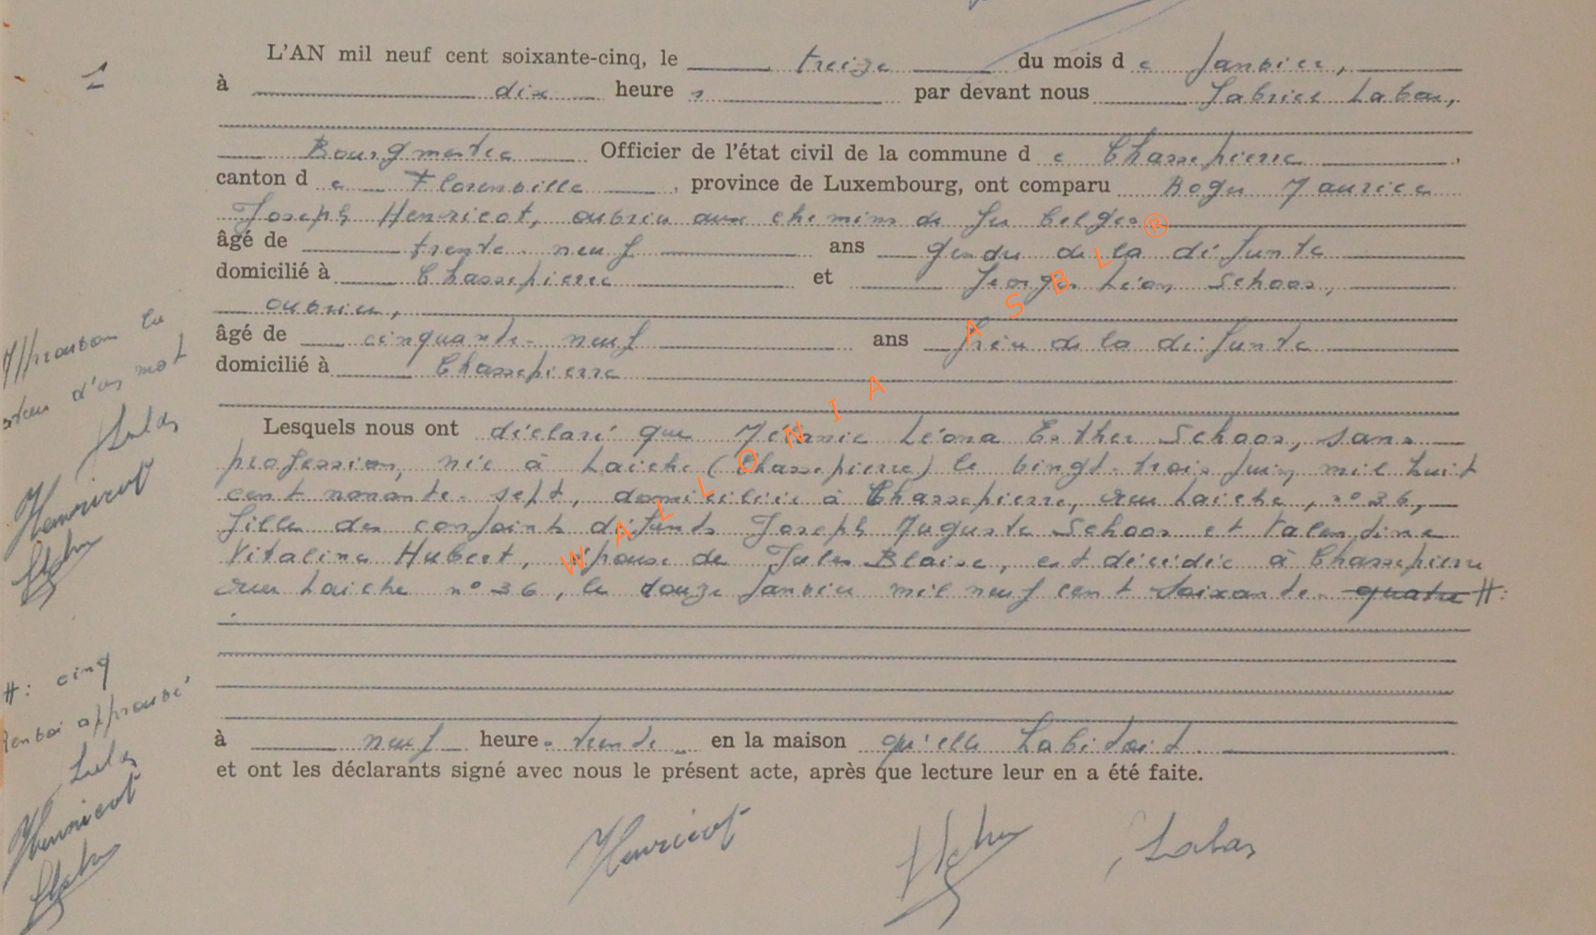 1
L'AN mil neuf cent soixante-cinq, le treize du mois de Janvier,
à dix heures par devant nous Fabrice Labas,
Bourgmestre Officier de l'état civil de la commune de Chassepierre,
canton de Florenville, province de Luxembourg, ont comparu Roger Maurice
Joseph Henricot, ouvrier aux chemins de fer belges
âgé de trente-neuf ans gendre de la défunte
domicilié à Chassepierre et Georges Léon Schoos,
ouvrier,
âgé de cinquante-neuf ans frère de la défunte
domicilié à Chassepierre
Lesquels nous ont déclaré que Léona Esther Schoos, sans
profession, née à Laiche (Chassepierre) le vingt-trois juin mil huit
cent nonante-sept, domiciliée à Chassepierre, rue Laiche, n° 36,
fille des conjoints défunts Joseph Auguste Schoos et Valentine
Vitaline Hubert, épouse de Jules Blaise, est décédée à Chassepierre
rue Laiche n° 36, le douze Janvier mil neuf cent soixante-quatre #:
à neuf heures trente en la maison qu'elle habitait.
et ont les déclarants signé avec nous le présent acte, après que lecture leur en a été faite.
Henricot Labas
Approuvons la
rature d'un mot
Henricot
#: cinq
Renvoi approuvé
Henricot
WALLONIA ASBL®